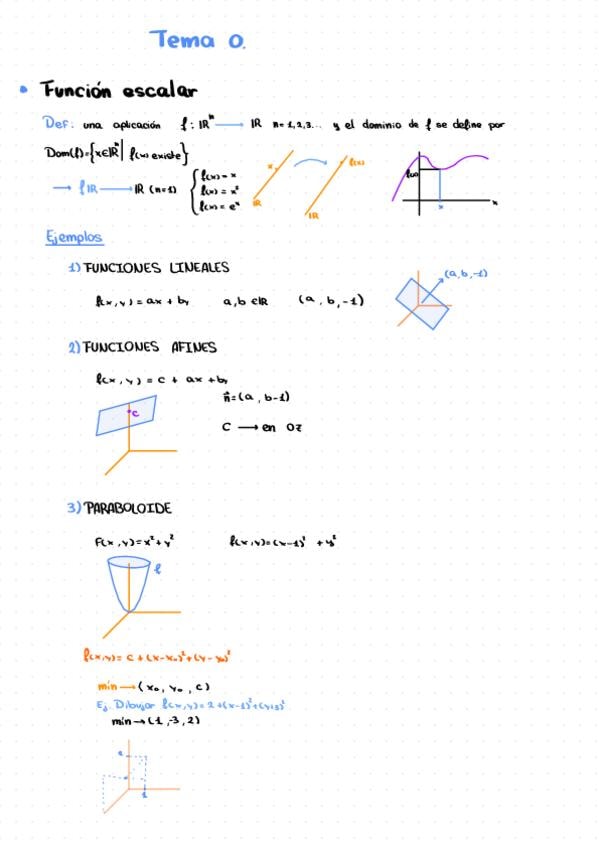 Tema 0.
• Función escalar
Def: una aplicación f: ℝⁿ → ℝ n=1,2,3... y el dominio de f se define por
Dom(f)={x∈ℝⁿ| f(x) existe}
→ f ℝ → ℝ (n=1) { f(x)= x
f(x) = x²
f(x) = eˣ
x f(x)
ℝ ℝ
f(x)
x x
Ejemplos
1) FUNCIONES LINEALES
f(x,y)= ax + by a,b ∈ℝ (a, b, -1)
(a,b,-1)
2) FUNCIONES AFINES
f(x,y) = c + ax + by
n⃗=(a, b-1)
c
C → en OZ
3) PARABOLOIDE
F(x,y)=x²+y² f(x,y)=(x-1)² + y²
f
f(x,y)= c + (x-x₀)²+(y-y₀)²
min → (x₀, y₀, c)
Ej. Dibujar f(x,y)= 2+(x-1)²+(y+3)²
min → (1,-3,2)
2
1